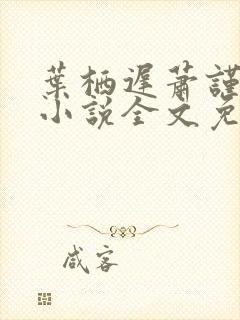 葉栖遲蕭謹
小說全文免
咸客